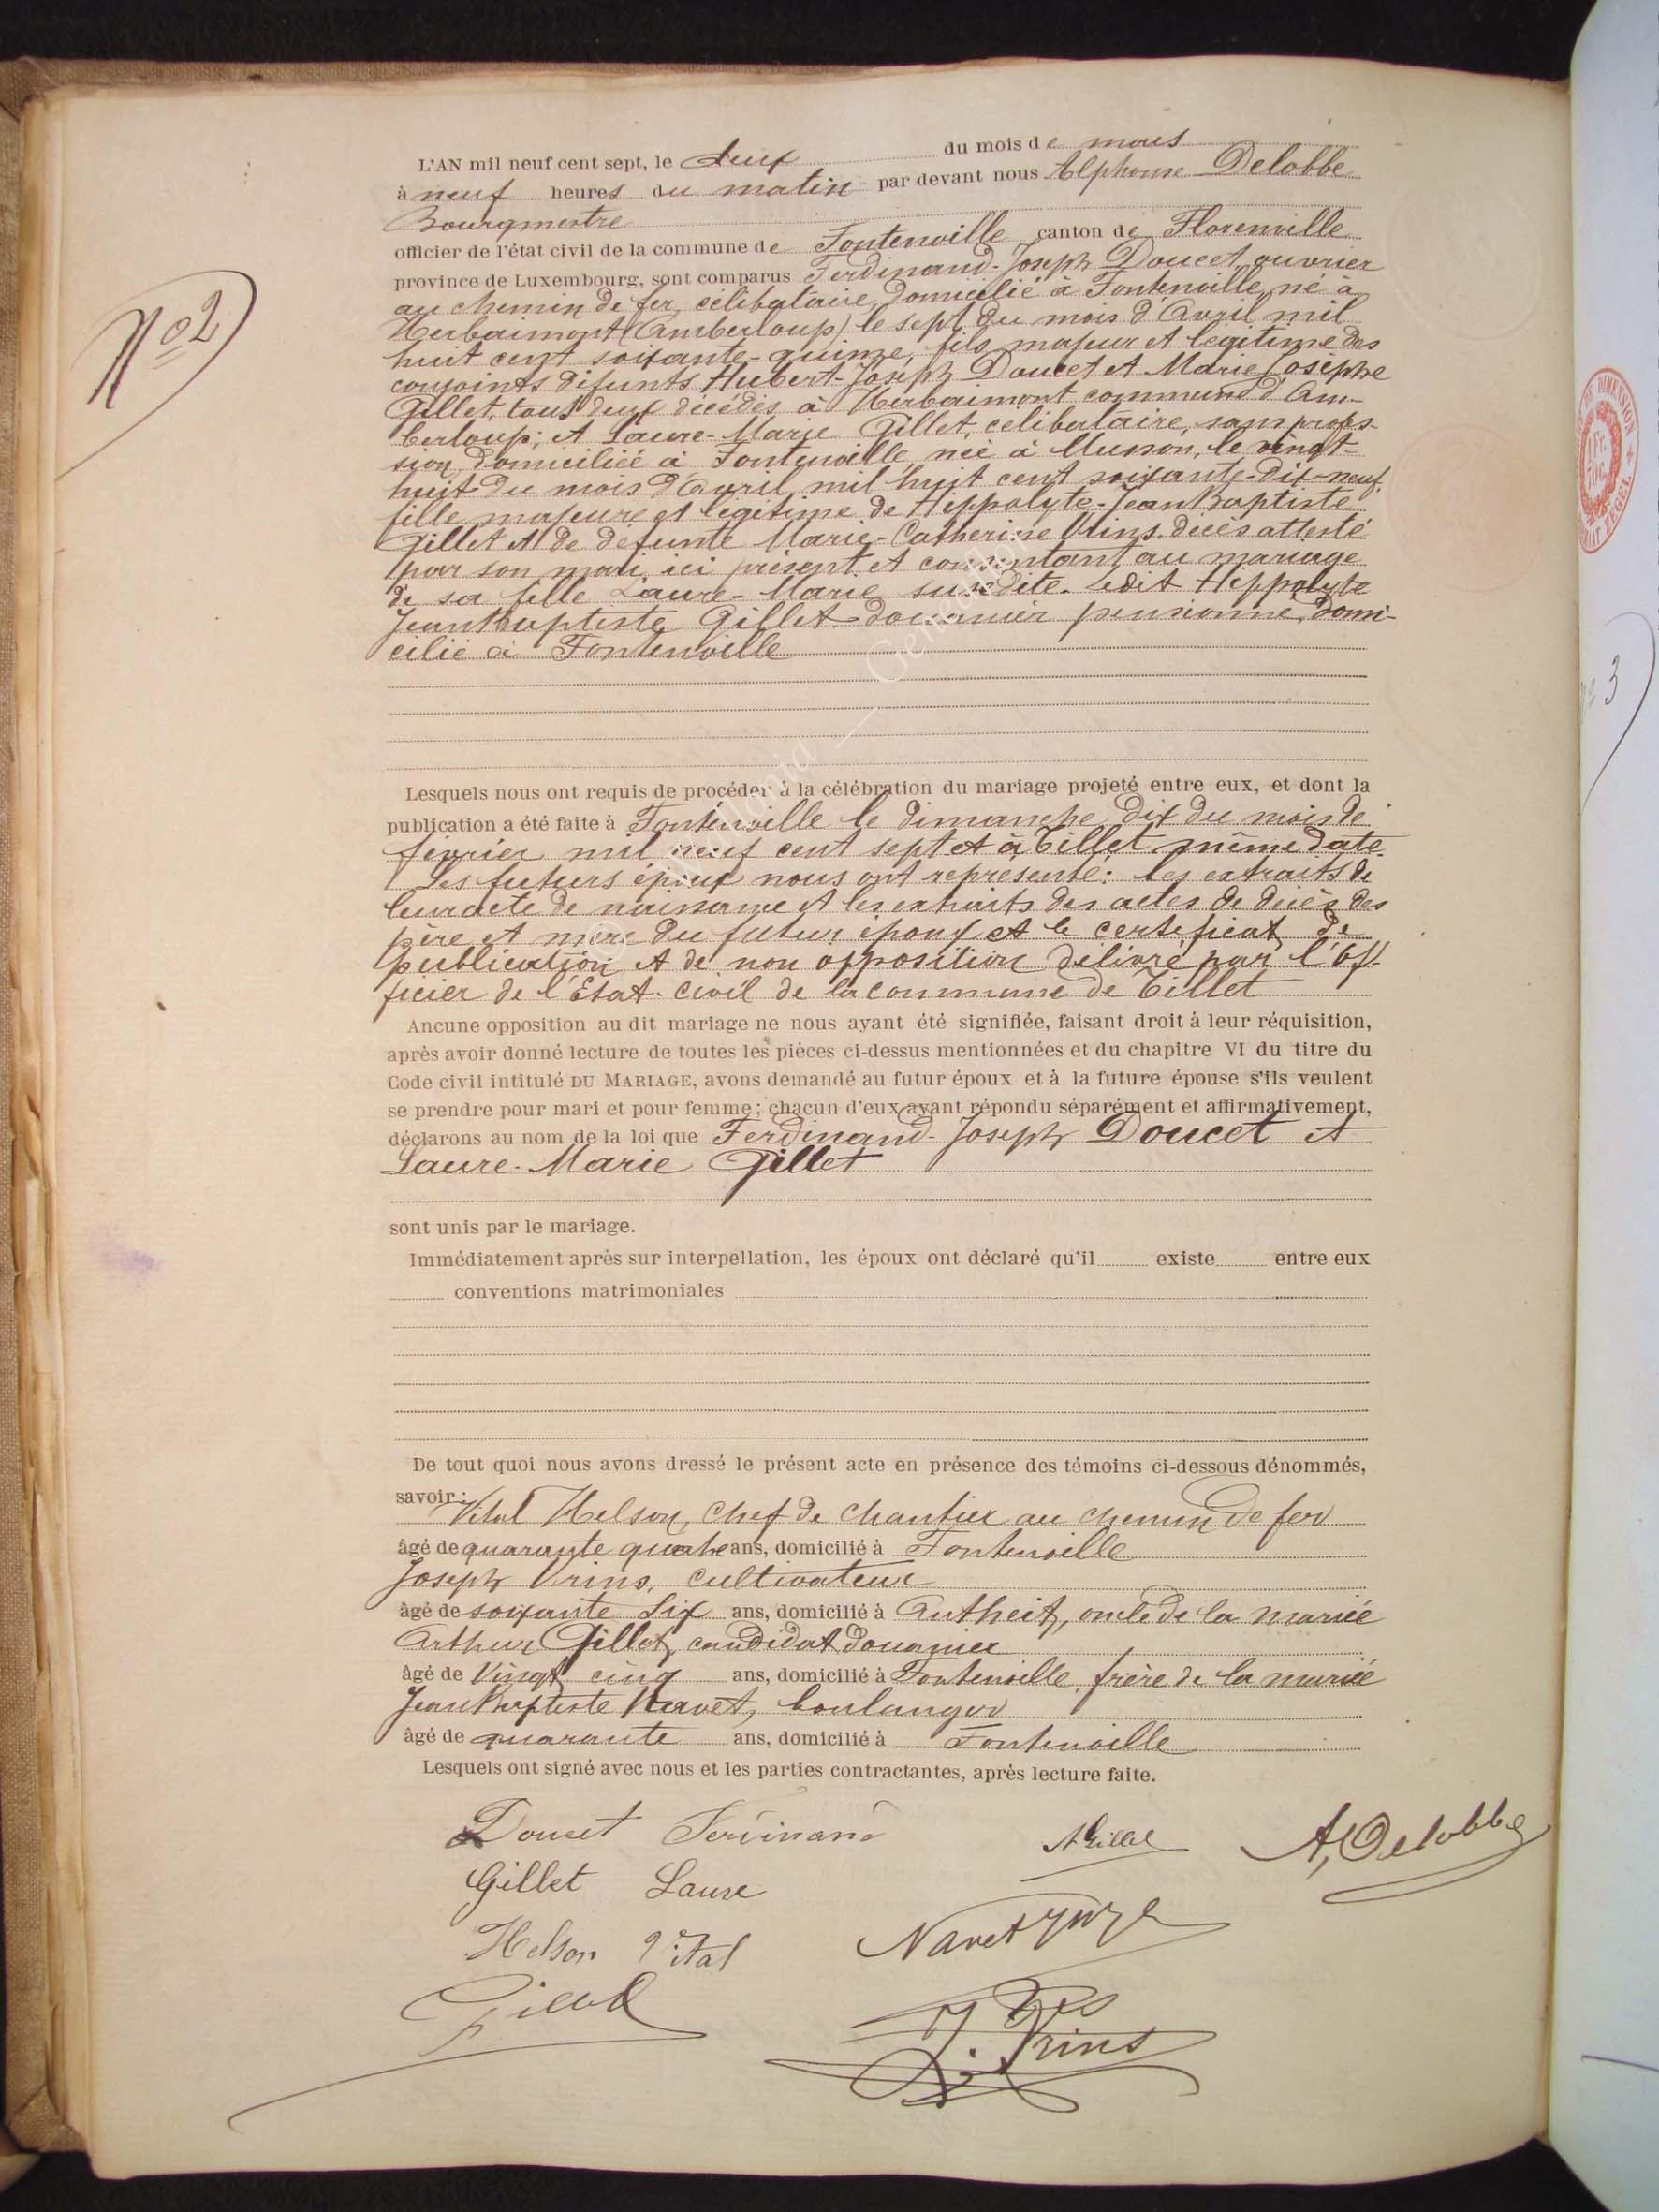 N° 2
L'AN mil neuf cent sept, le deux du mois de mars
à neuf heures du matin par devant nous Alphonse Delobbe
Bourgmestre
officier de l'état civil de la commune de Fontenoille canton de Florenville
province de Luxembourg, sont comparus Ferdinand-Joseph Doucet, ouvrier
au chemin de fer, célibataire, domicilié à Fontenoille, né à
Herbaimont (Amberloup) le sept du mois d'Avril mil
huit cent soixante-quinze, fils majeur et légitime des
conjoints défunts Hubert-Joseph Doucet et Marie Josèphe
Gillet, tous deux décédés à Herbaimont commune d'Am-
berloup; et Laure-Marie Gillet, célibataire, sans profes-
sion, domiciliée à Fontenoille, née à Musson, le vingt-
huit du mois d'Avril mil huit cent soixante-dix-neuf,
fille majeure et légitime de Hippolyte-Jean Baptiste
Gillet et de défunte Marie-Catherine Vrins. décès attesté
par son mari, ici présent et consentant au mariage
de sa fille Laure-Marie susdite. Ledit Hippolyte
Jean Baptiste Gillet douanier pensionné, domi-
cilié à Fontenoille
Lesquels nous ont requis de procéder à la célébration du mariage projeté entre eux, et dont la
publication a été faite à Fontenoille le dimanche dix du mois de
février mil neuf cent sept et à Tillet même date.
Les futurs époux nous ont représenté: les extraits de
leur acte de naissance et les extraits des actes de décès des
père et mère du futur époux et le certificat de
publication et de non opposition délivré par l'Of-
ficier de l'État-civil de la commune de Tillet
Ancune opposition au dit mariage ne nous ayant été signifiée, faisant droit à leur réquisition,
après avoir donné lecture de toutes les pièces ci-dessus mentionnées et du chapitre VI du titre du
Code civil intitulé DU MARIAGE, avons demandé au futur époux et à la future épouse s'ils veulent
se prendre pour mari et pour femme; chacun d'eux ayant répondu séparément et affirmativement,
déclarons au nom de la loi que Ferdinand-Joseph Doucet et
Laure-Marie Gillet
sont unis par le mariage.
Immédiatement après sur interpellation, les époux ont déclaré qu'il existe entre eux
conventions matrimoniales
De tout quoi nous avons dressé le présent acte en présence des témoins ci-dessous dénommés,
savoir:
Vital Helson, chef de chantier au chemin de fer
âgé de quarante quatre ans, domicilié à Fontenoille
Joseph Vrins, cultivateur
âgé de soixante six ans, domicilié à Antheit, oncle de la mariée
Arthur Gillet, candidat douanier
âgé de Vingt cinq ans, domicilié à Fontenoille, frère de la mariée
Jean Baptiste Navet, boulanger
âgé de quarante ans, domicilié à Fontenoille
Lesquels ont signé avec nous et les parties contractantes, après lecture faite.
Doucet Ferdinand
A Gillet
A, Delobbe
Gillet Laure
Helson Vital
Navet
J. Vrins
3